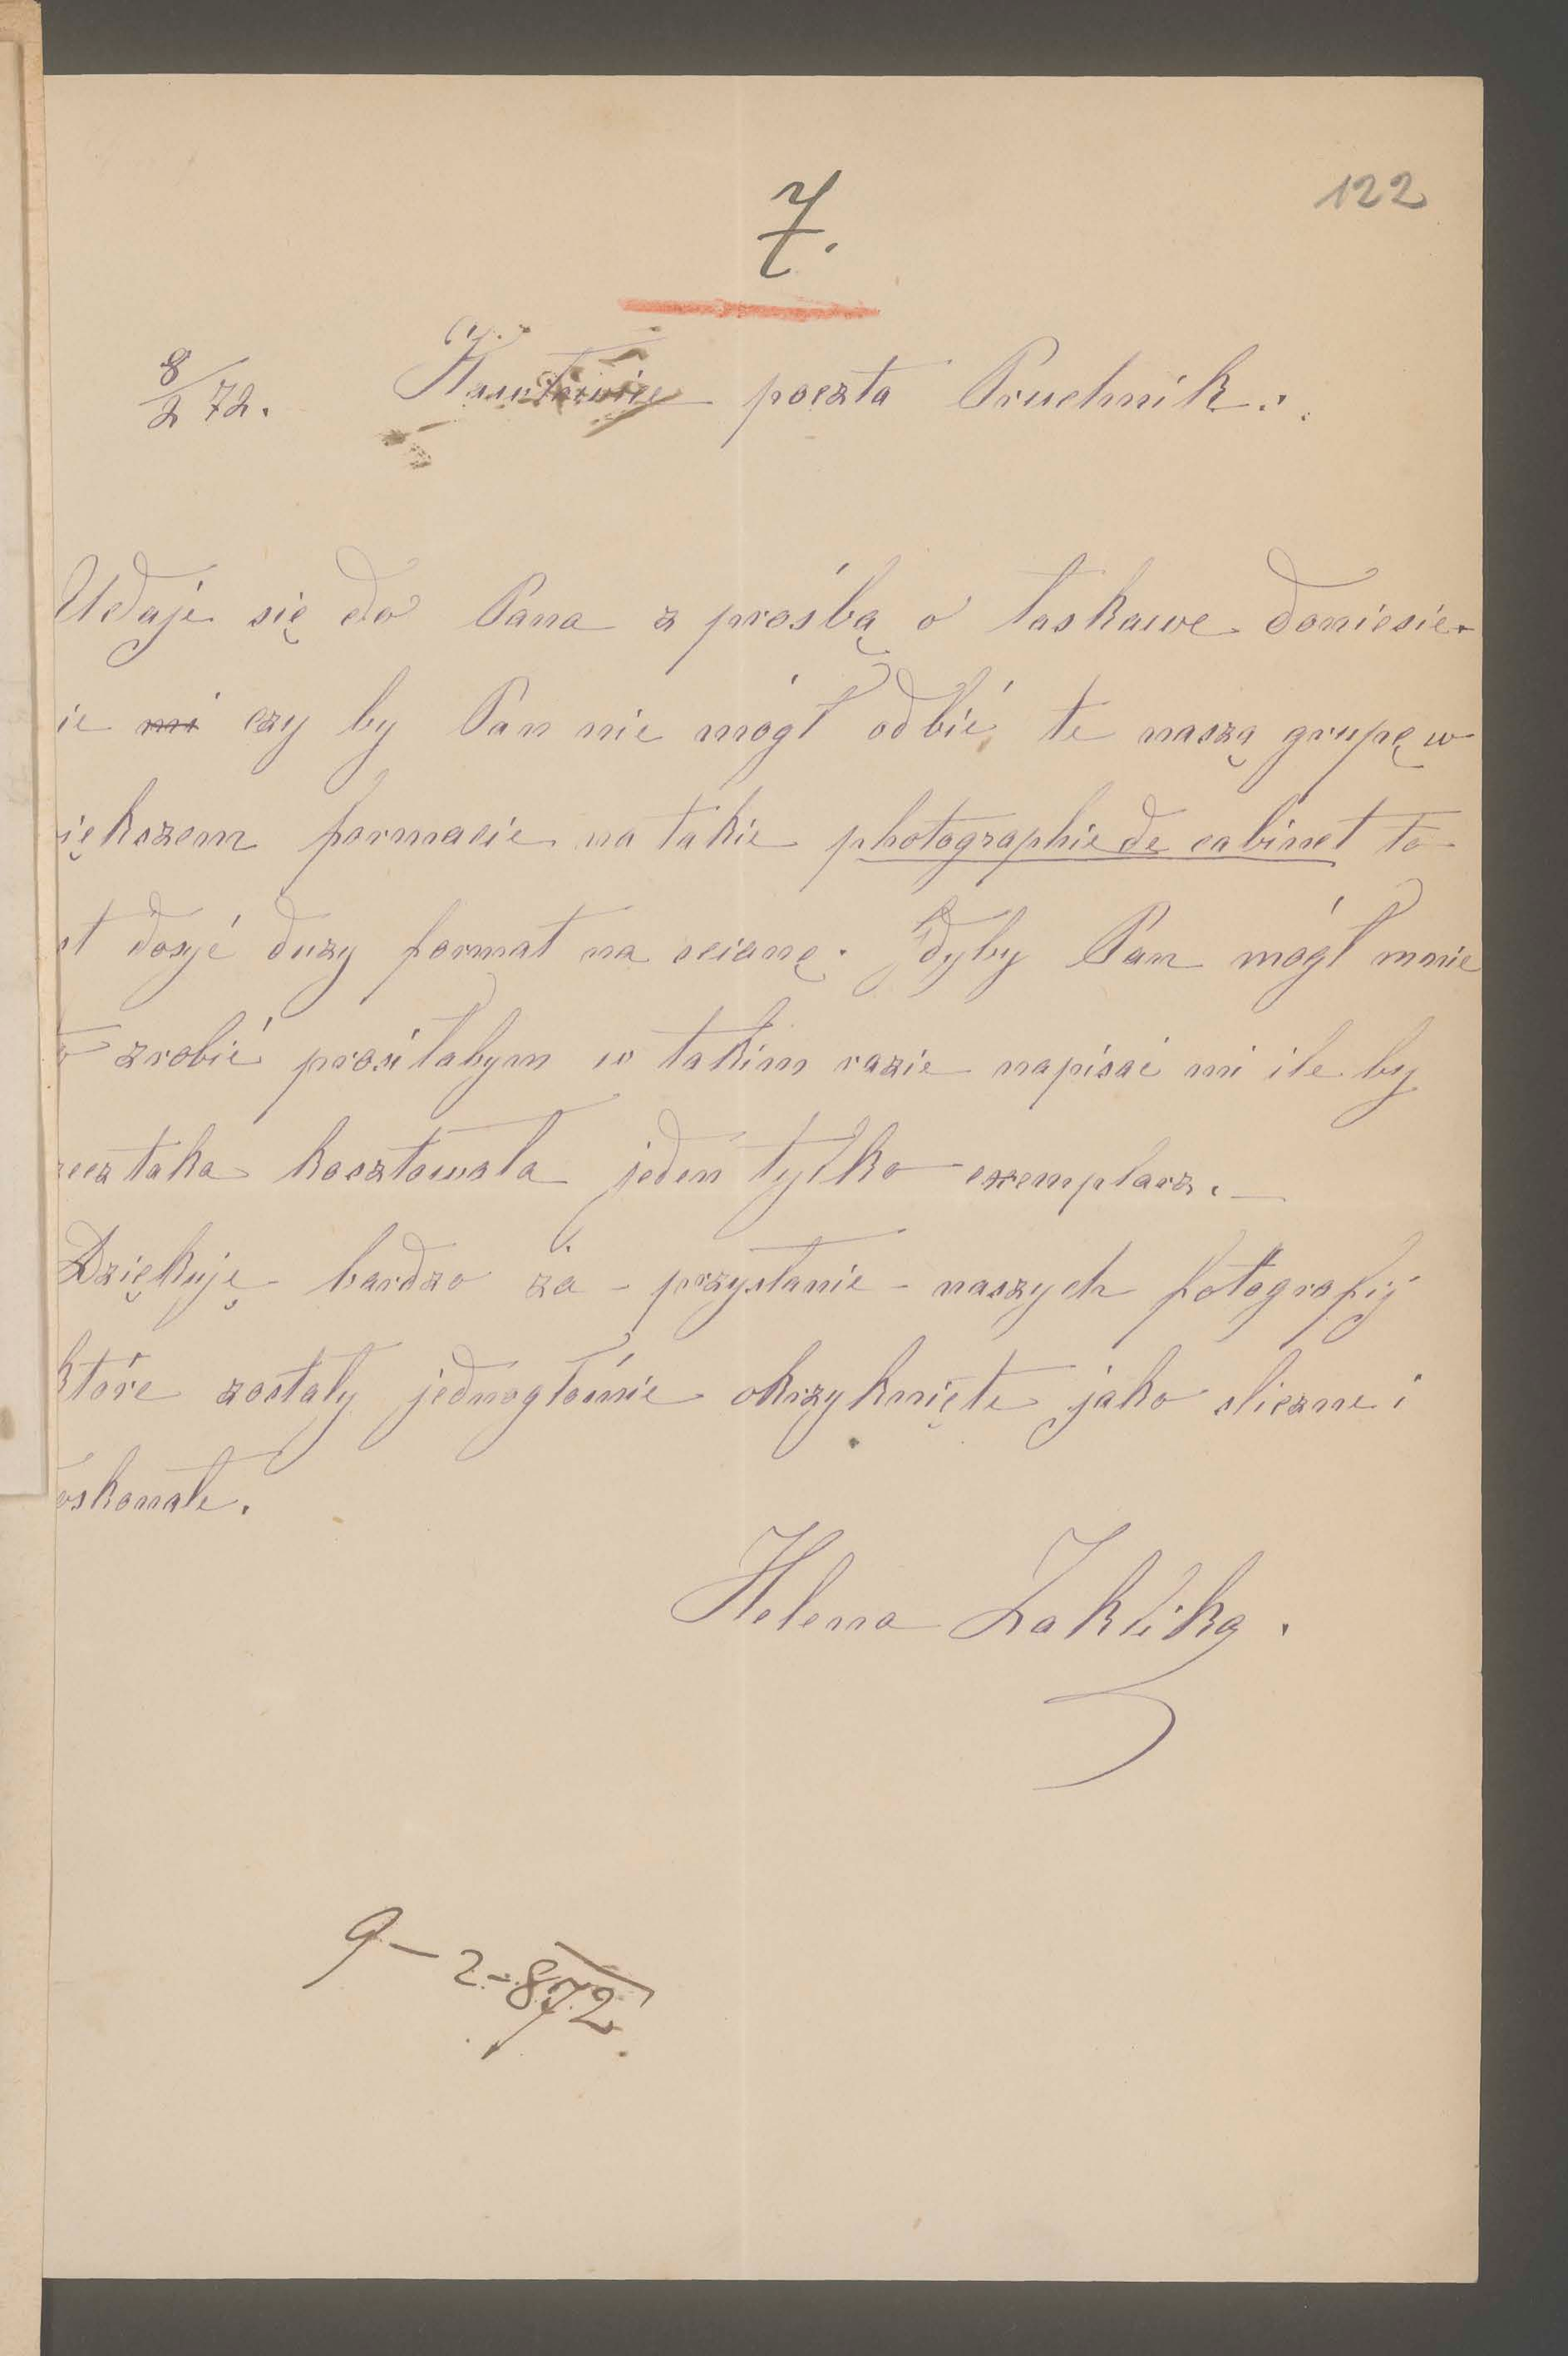 122
7.
8/2 72. poczta Pruchnik.
Udaje się do Pana z prośbą o łaskawe doniesie-
ie mi czy by Pan nie mógł odbić te naszą grupę w
iększem formacie na takie photographie de cabinet to
st dosyć duzy format na scianę. Gdyby Pan mógł mnie
o zrobić prosiłabym w takim razie napisać mi ile by
zecz taka kosztowała jeden tylko exemplarz.—
Dziękuję bardzo za - przysłanie - naszych fotografij
które zostały jednogłośnie okrzyknięte jako sliczne i
oskonałe.
Helena Zaklika.
9-2-872.